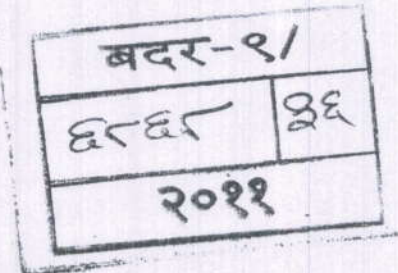 बदर-९/
६८६८ ३६
२०११